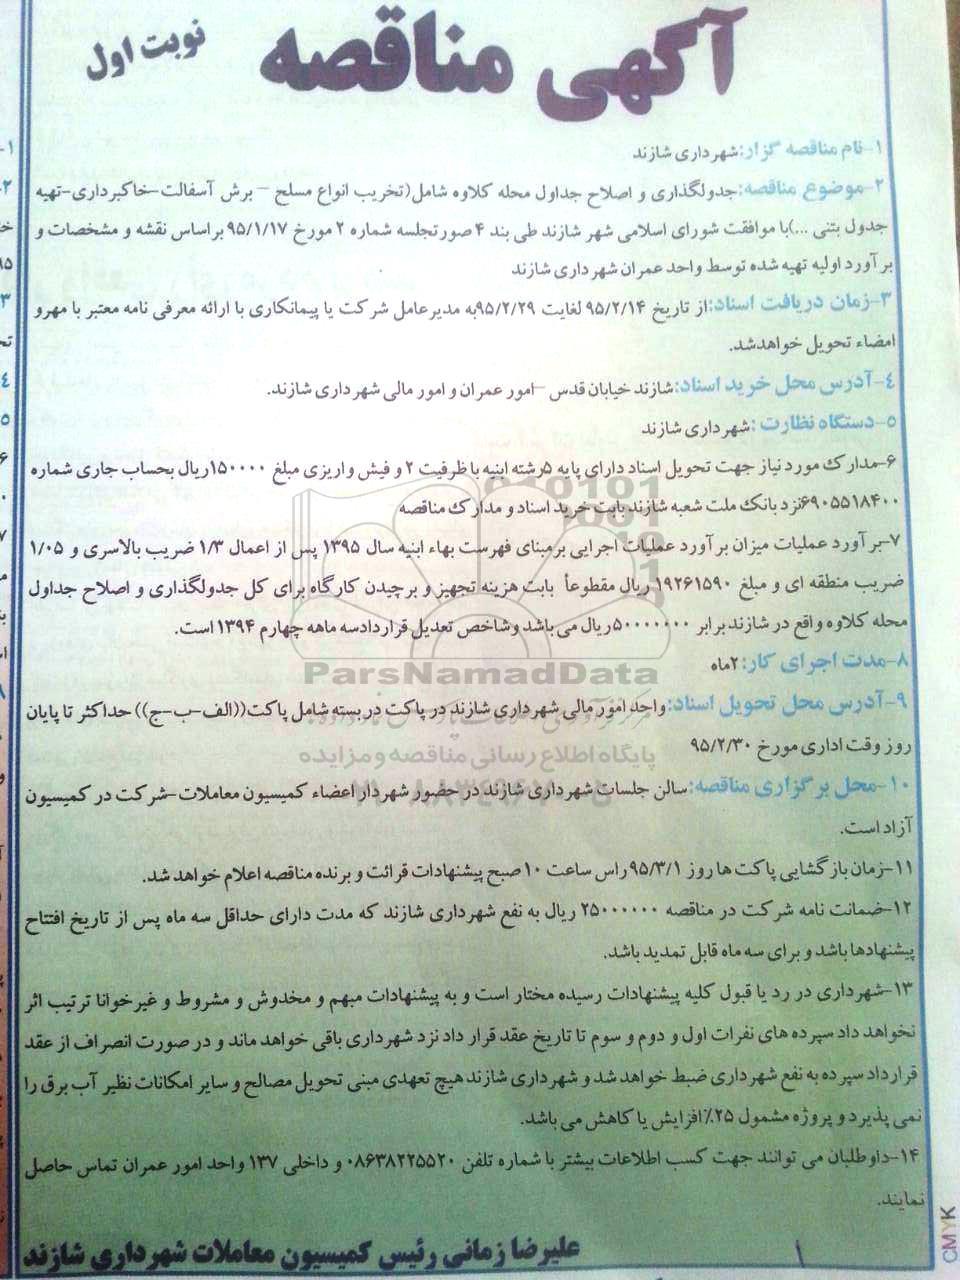 آگهی مناقصه
نوبت اول
۱-نام مناقصه گزار:شهرداری شازند
۲-موضوع مناقصه:جدولگذاری و اصلاح جداول محله کلاوه شامل(تخریب انواع مسلح – برش آسفالت-خاکبرداری-تهیه
جدول بتنی ...)با موافقت شورای اسلامی شهر شازند طی بند ۴ صورتجلسه شماره ۲ مورخ ۹۵/۱/۱۷ براساس نقشه و مشخصات و
برآورد اولیه تهیه شده توسط واحد عمران شهرداری شازند
۳-زمان دریافت اسناد:از تاریخ ۹۵/۲/۱۴ لغایت ۹۵/۲/۲۹به مدیرعامل شرکت یا پیمانکاری با ارائه معرفی نامه معتبر با مهر و
امضاء تحویل خواهدشد.
۴-آدرس محل خرید اسناد:شازند خیابان قدس –امور عمران و امور مالی شهرداری شازند.
۵-دستگاه نظارت :شهرداری شازند
۶-مدارک مورد نیاز جهت تحویل اسناد دارای پایه ۵رشته ابنیه با ظرفیت ۲ و فیش واریزی مبلغ ۱۵۰۰۰۰ریال بحساب جاری شماره
۶۹۰۵۵۱۸۴۰۰نزد بانک ملت شعبه شازند بابت خرید اسناد و مدارک مناقصه
۷-برآورد عملیات میزان برآورد عملیات اجرایی برمبنای فهرست بهاء ابنیه سال ۱۳۹۵ پس از اعمال ۱/۳ ضریب بالاسری و ۱/۰۵
ضریب منطقه ای و مبلغ ۱۹۲۶۱۵۹۰ ریال مقطوعاً بابت هزینه تجهیز و برچیدن کارگاه برای کل جدولگذاری و اصلاح جداول
محله کلاوه واقع در شازند برابر ۵۰۰۰۰۰۰۰۰ریال می باشد وشاخص تعدیل قراردادسه ماهه چهارم ۱۳۹۴ است.
ParsNamadData
۸-مدت اجرای کار: ۲ماه
۹-آدرس محل تحویل اسناد:واحد امور مالی شهرداری شازند در پاکت دربسته شامل پاکت((الف-ب-ج)) حداکثر تا پایان
روز وقت اداری مورخ ۹۵/۲/۳۰
پایگاه اطلاع رسانی مناقصه و مزایده
۱۰-محل برگزاری مناقصه:سالن جلسات شهرداری شازند در حضور شهردار اعضاء کمیسیون معاملات-شرکت در کمیسیون
آزاد است.
۱۱-زمان بازگشایی پاکت ها روز ۹۵/۳/۱راس ساعت ۱۰ صبح پیشنهادات قرائت و برنده مناقصه اعلام خواهد شد.
۱۲-ضمانت نامه شرکت در مناقصه ۲۵۰۰۰۰۰۰ ریال به نفع شهرداری شازند که مدت دارای حداقل سه ماه پس از تاریخ افتتاح
پیشنهادها باشد و برای سه ماه قابل تمدید باشد.
۱۳-شهرداری در رد یا قبول کلیه پیشنهادات رسیده مختار است و به پیشنهادات مبهم و مخدوش و مشروط و غیرخوانا ترتیب اثر
نخواهد داد سپرده های نفرات اول و دوم و سوم تا تاریخ عقد قرار داد نزد شهرداری باقی خواهد ماند و در صورت انصراف از عقد
قرارداد سپرده به نفع شهرداری ضبط خواهد شد و شهرداری شازند هیچ تعهدی مبنی تحویل مصالح و سایر امکانات نظیر آب برق را
نمی پذیرد و پروژه مشمول ۲۵٪افزایش یا کاهش می باشد.
۱۴-داوطلبان می توانند جهت کسب اطلاعات بیشتر با شماره تلفن ۰۸۶۳۸۲۲۵۵۲۰ و داخلی ۱۳۷ واحد امور عمران تماس حاصل
نمایند.
علیرضا زمانی رئیس کمیسیون معاملات شهرداری شازند
CMYK